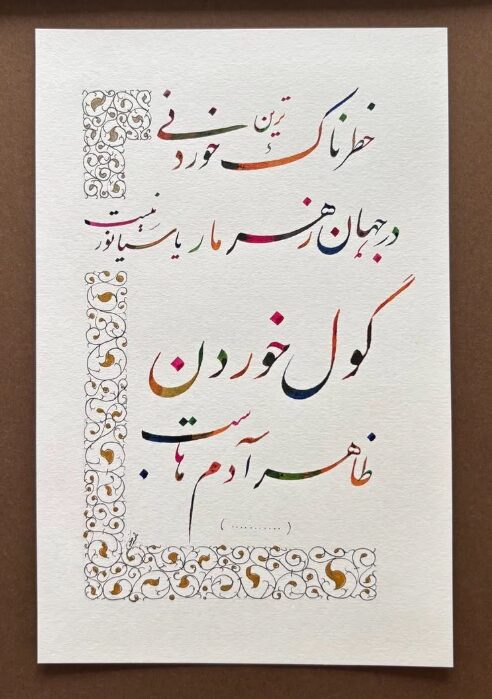 خطرناک ترین خوردنی
در جهان زهر مار یا سیانور نیست
گول خوردن
ظاهر آدم هاست
(............)